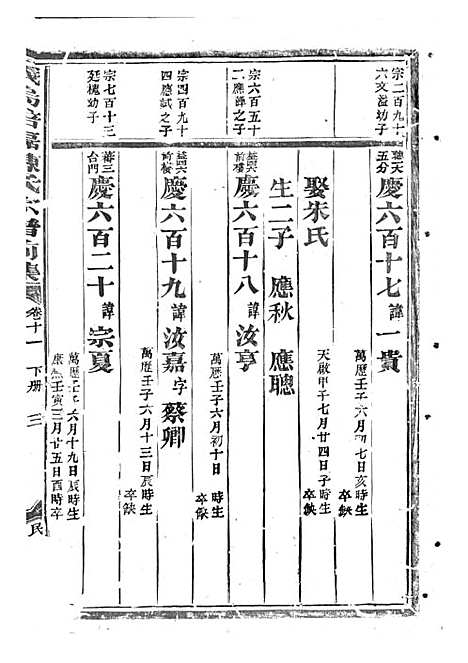 宗二百九十
六文溢幼子
聽天
五分
慶六百十七諱一貴
萬歷壬子六月初七日亥時生
卒缺
娶朱氏
天啟甲子七月廿四日子時生
卒缺
生二子 應秋 應聰
宗六百五十
二應鐸之子
益六
前樓
慶六百十八諱汝亨
萬歷壬子六月初十日時生
卒缺
宗四百九十
四應試之子
益六
前樓
慶六百十九諱汝嘉字蔡卿
萬歷壬子六月十三日辰時生
卒缺
宗七百十三
廷槐幼子
蕃三
台門
慶六百二十諱宗夏
萬歷壬子六月十九日辰時生
康熙壬寅三月廿五日酉時卒
義烏倍磊陳氏宗譜前集 卷十一 下册 三
民